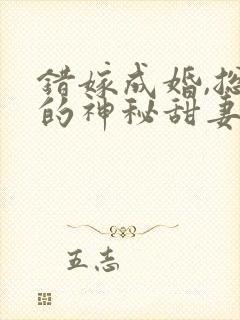 错嫁成婚,总
的神秘甜妻
五志